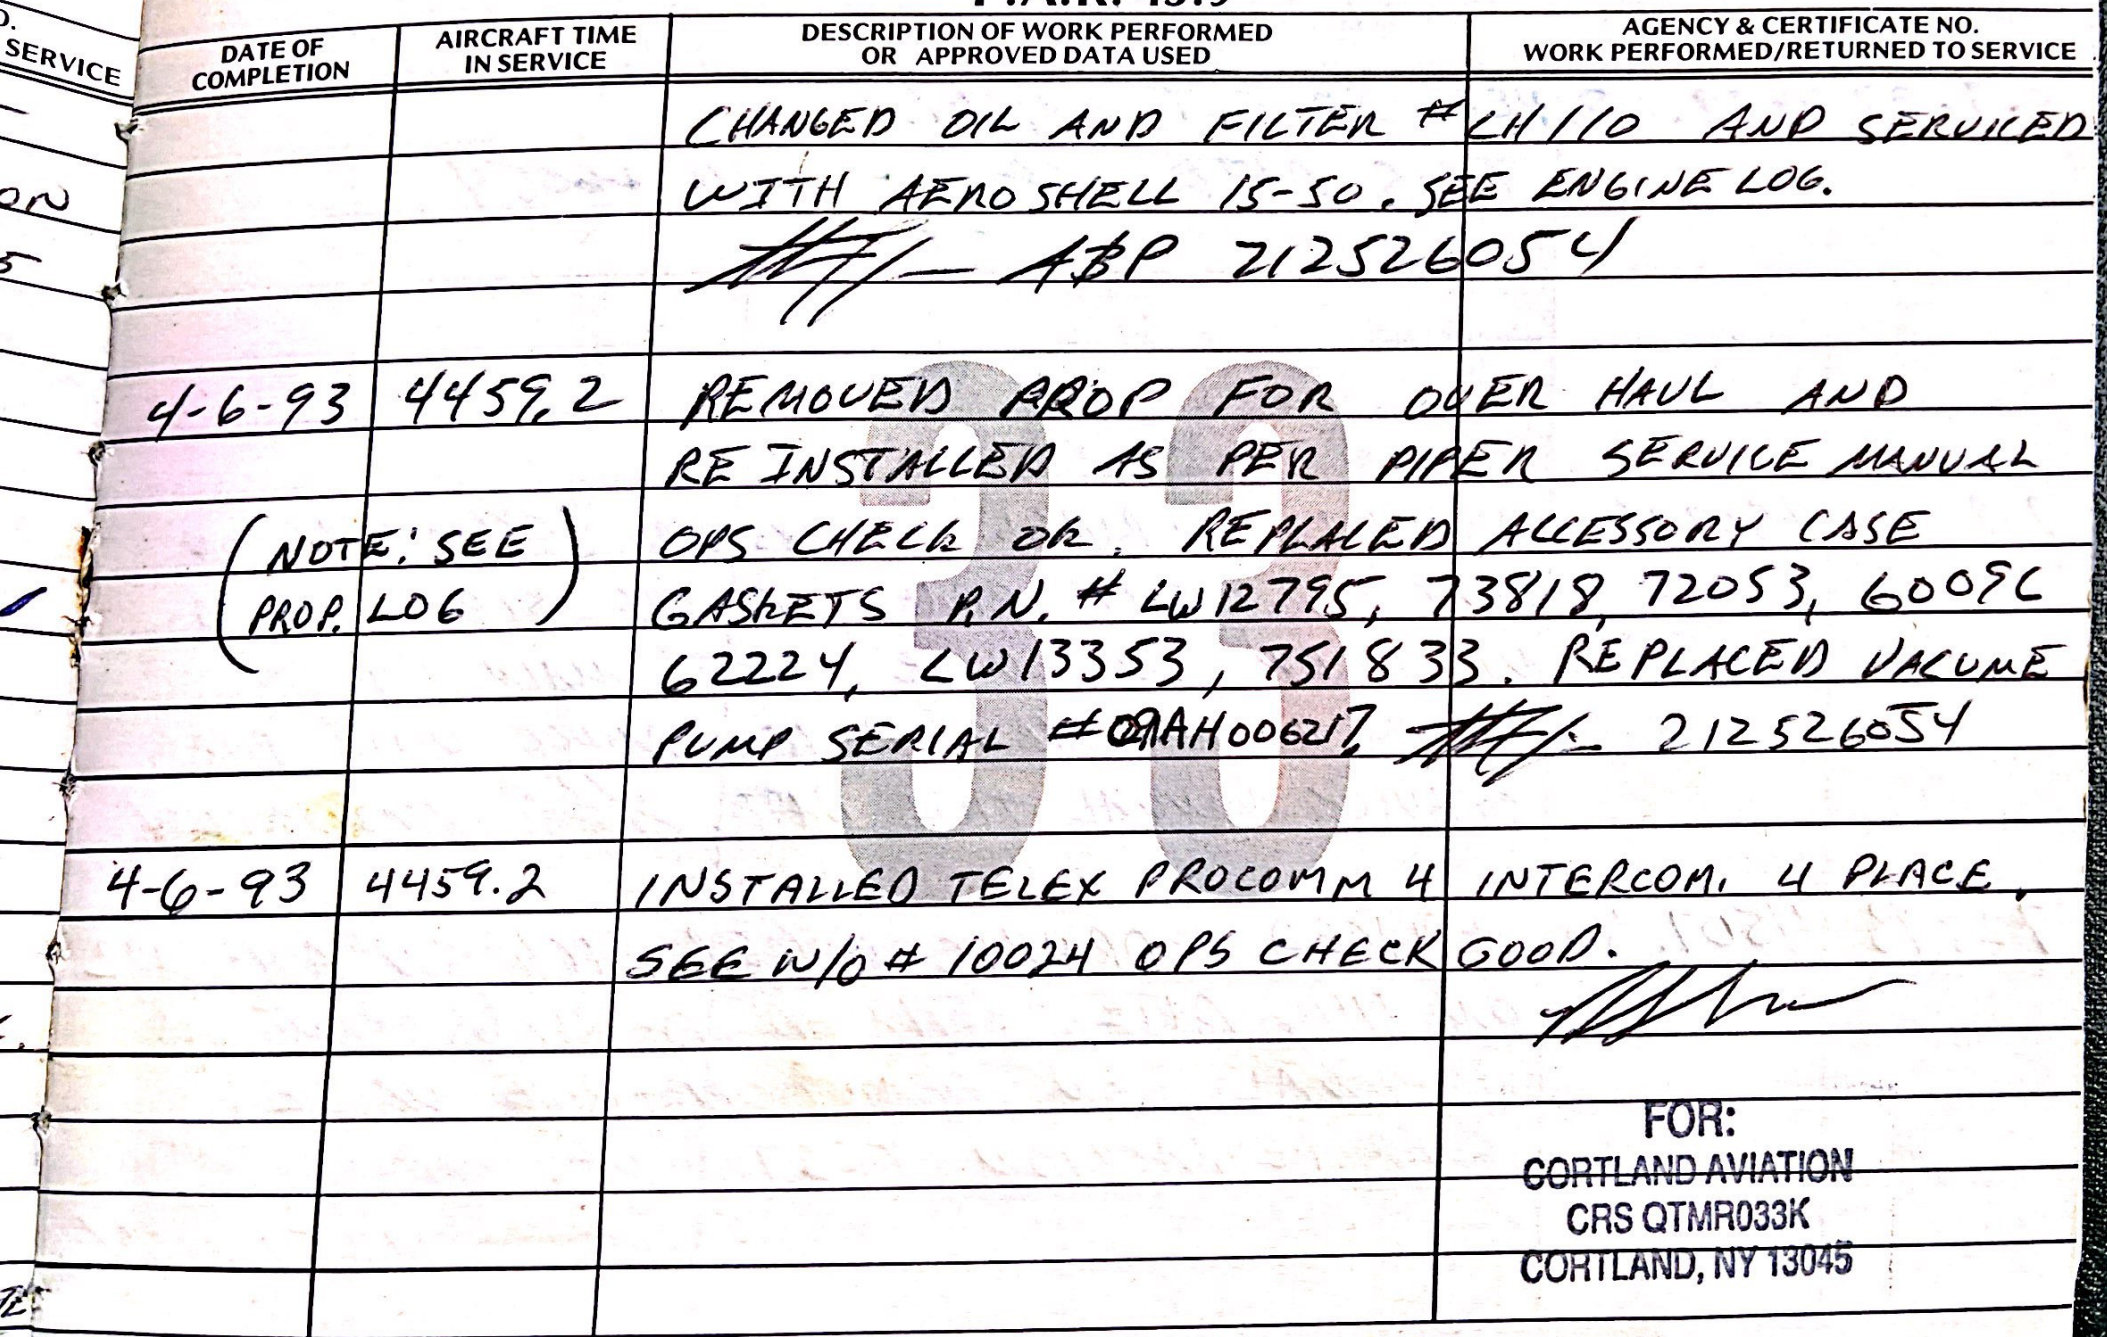 F.A.R. 43.9
O.
SERVICE
DATE OF
COMPLETION
AIRCRAFT TIME
IN SERVICE
DESCRIPTION OF WORK PERFORMED
OR APPROVED DATA USED
AGENCY & CERTIFICATE NO.
WORK PERFORMED/RETURNED TO SERVICE
ON
5
CHANGED OIL AND FILTER # CH110 AND SERVICED
WITH AEROSHELL 15-50. SEE ENGINE LOG.
A&P 212526054
33
4-6-93 4459.2 REMOVED PROP FOR OVER HAUL AND
RE INSTALLED AS PER PIPER SERVICE MANUAL
(NOTE: SEE OPS CHECK OK. REPLACED ACCESSORY CASE
PROP. LOG) GASKETS P.N. # LW12795, 73818, 72053, 60096
62224, LW13353, 751833. REPLACED VACUME
PUMP SERIAL # AH006217, 212526054
4-6-93 4459.2 INSTALLED TELEX PROCOMM 4 INTERCOM. 4 PLACE.
SEE W/O # 10024 OPS CHECK GOOD.
FOR:
CORTLAND AVIATION
CRS QTMR033K
CORTLAND, NY 13045